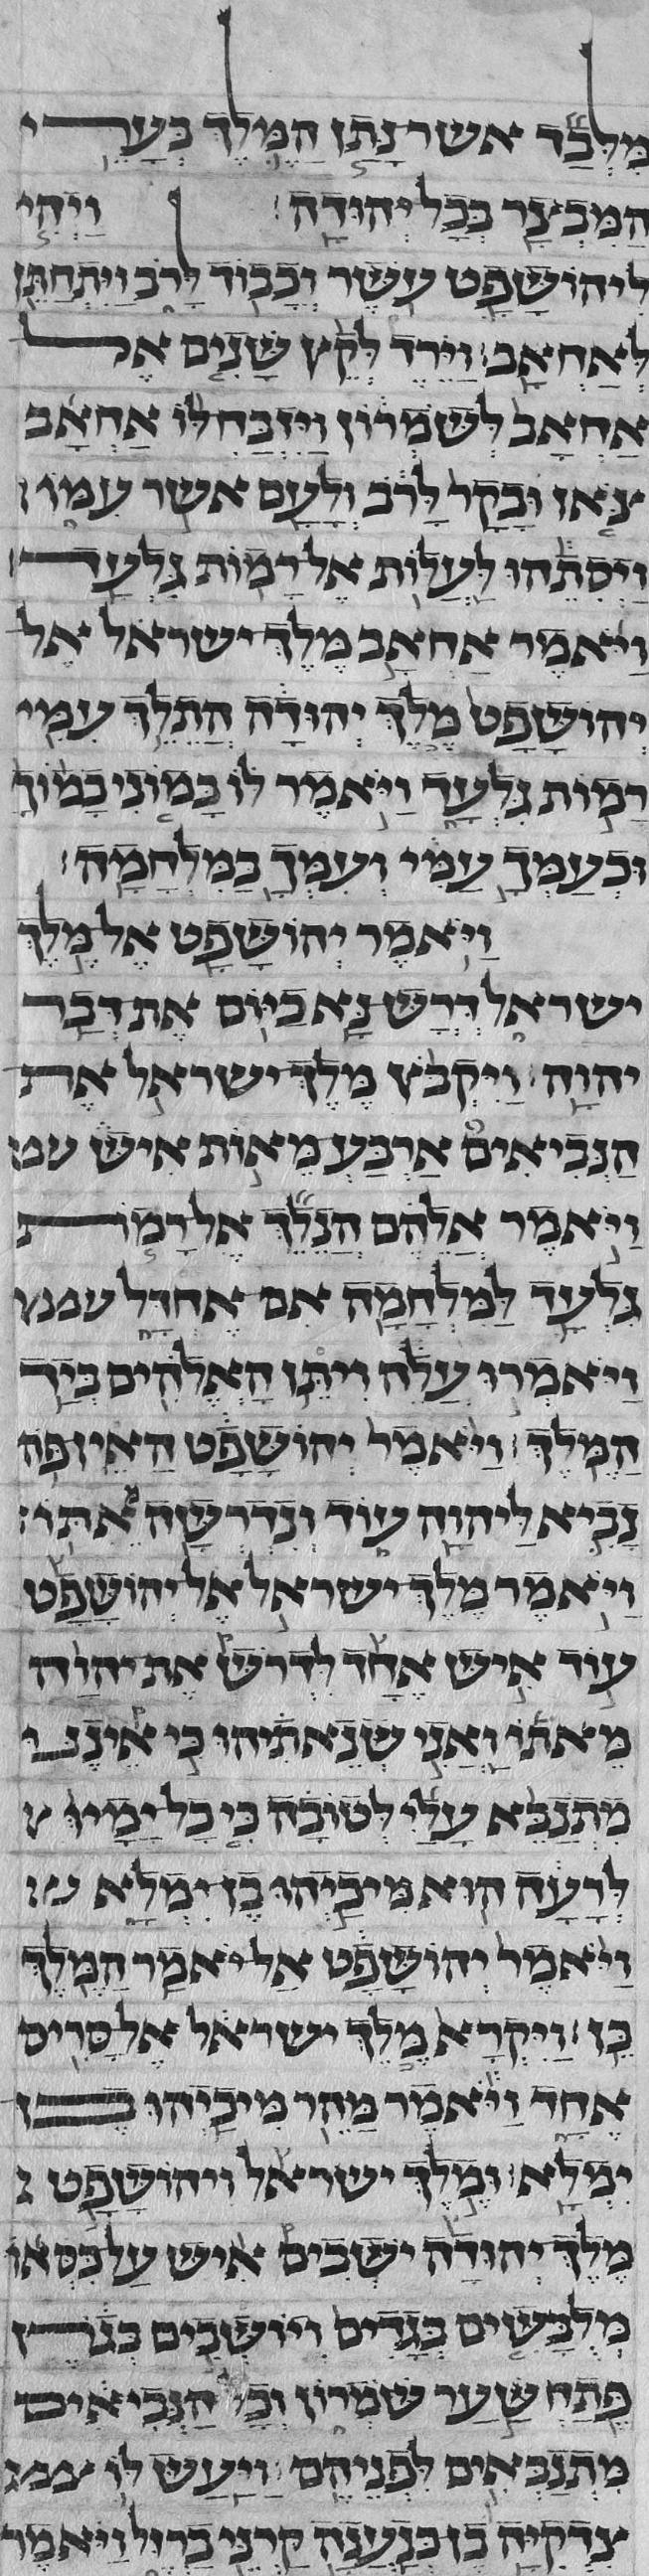 מִלְּבַד אשר נָתַן הַמֶּלֶךְ בְּעָרֵי
הַמִּבְצָר בְּכָל יְהוּדָה׃ וַיְהִי
לִיהוֹשָׁפָט עֹשֶׁר וְכָבוֹד לָרֹב וַיִּתְחַתֵּן
לְאַחְאָב׃ וַיֵּרֶד לְקֵץ שָׁנִים אֶל
אַחְאָב לְשֹׁמְרוֹן וַיִּזְבַּח לוֹ אַחְאָב
צֹאן וּבָקָר לָרֹב וְלָעָם אשר עִמּוֹ
וַיְסִתֵהוּ לַעֲלוֹת אֶל רָמוֹת גִּלְעָד׃
וַיֹּאמֶר אַחְאָב מֶלֶךְ ישראל אֶל
יְהוֹשָׁפָט מֶלֶךְ יְהוּדָה הֲתֵלֵךְ עִמִּי
רָמוֹת גִּלְעָד וַיֹּאמֶר לוֹ כָּמוֹנִי כָמוֹךָ
וּכְעַמְּךָ עַמִּי וְעִמְּךָ בַּמִּלְחָמָה׃
וַיֹּאמֶר יְהוֹשָׁפָט אֶל מֶלֶךְ
ישראל דְּרָשׁ נָא כַיּוֹם אֶת דְּבַר
יהוה׃ וַיִּקְבֹּץ מֶלֶךְ ישראל אֶת
הַנְּבִיאִים אַרְבַּע מֵאוֹת אִישׁ
וַיֹּאמֶר אֲלֵהֶם הֲנֵלֵךְ אֶל רָמוֹת
גִּלְעָד לַמִּלְחָמָה אִם אֶחְדָּל
וַיֹּאמְרוּ עֲלֵה וְיִתֵּן הָאֱלֹהִים בְּיַד
הַמֶּלֶךְ׃ וַיֹּאמֶר יְהוֹשָׁפָט הַאֵין פֹּה
נָבִיא לַיהוה עוֹד וְנִדְרְשָׁה מֵאֹתוֹ׃
וַיֹּאמֶר מֶלֶךְ ישראל אֶל יְהוֹשָׁפָט
עוֹד אִישׁ אֶחָד לִדְרוֹשׁ אֶת יהוה
מֵאֹתוֹ וַאֲנִי שְׂנֵאתִיהוּ כִּי אֵינֶנּוּ
מִתְנַבֵּא עָלַי לְטוֹבָה כִּי כָל יָמָיו
לְרָעָה הוּא מִיכָיְהוּ בֶן יִמְלָא
וַיֹּאמֶר יְהוֹשָׁפָט אַל יֹאמַר הַמֶּלֶךְ
כֵּן׃ וַיִּקְרָא מֶלֶךְ ישראל אֶל סָרִיס
אֶחָד וַיֹּאמֶר מַהֵר מִיכָיְהוּ בֶן
יִמְלָא׃ וּמֶלֶךְ ישראל וִיהוֹשָׁפָט
מֶלֶךְ יְהוּדָה יוֹשְׁבִים אִישׁ עַל כִּסְאוֹ
מְלֻבָּשִׁים בְּגָדִים וְיוֹשְׁבִים בְּגֹרֶן
פֶּתַח שַׁעַר שֹׁמְרוֹן וְכָל הַנְּבִיאִים
מִתְנַבְּאִים לִפְנֵיהֶם׃ וַיַּעַשׂ לוֹ
צִדְקִיָּה בֶן כְּנַעֲנָה קַרְנֵי בַרְזֶל וַיֹּאמֶר